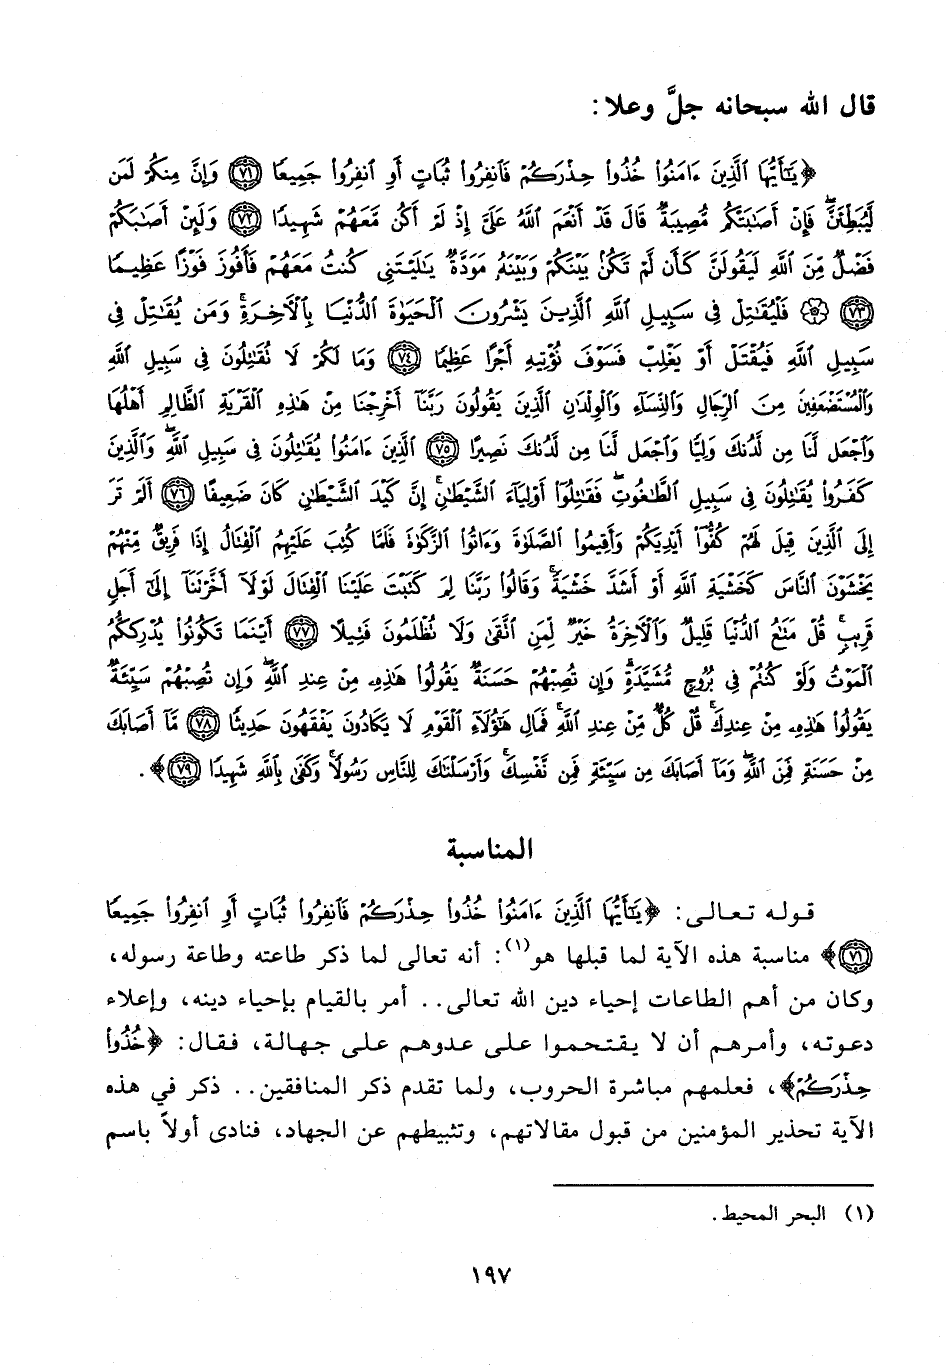 قال الله سبحانه جلَّ وعلا:
﴿يَٰٓأَيُّهَا ٱلَّذِينَ ءَامَنُوا۟ خُذُوا۟ حِذْرَكُمْ فَٱنفِرُوا۟ ثُبَاتٍ أَوِ ٱنفِرُوا۟ جَمِيعًا ٧١ وَإِنَّ مِنكُمْ لَمَن
لَّيُبَطِّئَنَّۖ فَإِنْ أَصَٰبَتْكُم مُّصِيبَةٌ قَالَ قَدْ أَنْعَمَ ٱللَّهُ عَلَىَّ إِذْ لَمْ أَكُن مَّعَهُمْ شَهِيدًا ٧٢ وَلَئِنْ أَصَٰبَكُمْ
فَضْلٌ مِّنَ ٱللَّهِ لَيَقُولَنَّ كَأَن لَّمْ تَكُنۢ بَيْنَكُمْ وَبَيْنَهُۥ مَوَدَّةٌ يَٰلَيْتَنِى كُنتُ مَعَهُمْ فَأَفُوزَ فَوْزًا عَظِيمًا
٧٣ ۞ فَلْيُقَٰتِلْ فِى سَبِيلِ ٱللَّهِ ٱلَّذِينَ يَشْرُونَ ٱلْحَيَوٰةَ ٱلدُّنْيَا بِٱلْءَاخِرَةِۚ وَمَن يُقَٰتِلْ فِى
سَبِيلِ ٱللَّهِ فَيُقْتَلْ أَوْ يَغْلِبْ فَسَوْفَ نُؤْتِيهِ أَجْرًا عَظِيمًا ٧٤ وَمَا لَكُمْ لَا تُقَٰتِلُونَ فِى سَبِيلِ ٱللَّهِ
وَٱلْمُسْتَضْعَفِينَ مِنَ ٱلرِّجَالِ وَٱلنِّسَآءِ وَٱلْوِلْدَٰنِ ٱلَّذِينَ يَقُولُونَ رَبَّنَآ أَخْرِجْنَا مِنْ هَٰذِهِ ٱلْقَرْيَةِ ٱلظَّالِمِ أَهْلُهَا
وَٱجْعَل لَّنَا مِن لَّدُنكَ وَلِيًّا وَٱجْعَل لَّنَا مِن لَّدُنكَ نَصِيرًا ٧٥ ٱلَّذِينَ ءَامَنُوا۟ يُقَٰتِلُونَ فِى سَبِيلِ ٱللَّهِۖ وَٱلَّذِينَ
كَفَرُوا۟ يُقَٰتِلُونَ فِى سَبِيلِ ٱلطَّٰغُوتِ فَقَٰتِلُوٓا۟ أَوْلِيَآءَ ٱلشَّيْطَٰنِۖ إِنَّ كَيْدَ ٱلشَّيْطَٰنِ كَانَ ضَعِيفًا ٧٦ أَلَمْ تَرَ
إِلَى ٱلَّذِينَ قِيلَ لَهُمْ كُفُّوٓا۟ أَيْدِيَكُمْ وَأَقِيمُوا۟ ٱلصَّلَوٰةَ وَءَاتُوا۟ ٱلزَّكَوٰةَ فَلَمَّا كُتِبَ عَلَيْهِمُ ٱلْقِتَالُ إِذَا فَرِيقٌ مِّنْهُمْ
يَخْشَوْنَ ٱلنَّاسَ كَخَشْيَةِ ٱللَّهِ أَوْ أَشَدَّ خَشْيَةًۚ وَقَالُوا۟ رَبَّنَا لِمَ كَتَبْتَ عَلَيْنَا ٱلْقِتَالَ لَوْلَآ أَخَّرْتَنَآ إِلَىٰٓ أَجَلٍ
قَرِيبٍۗ قُلْ مَتَٰعُ ٱلدُّنْيَا قَلِيلٌ وَٱلْءَاخِرَةُ خَيْرٌ لِّمَنِ ٱتَّقَىٰ وَلَا تُظْلَمُونَ فَتِيلًا ٧٧ أَيْنَمَا تَكُونُوا۟ يُدْرِككُّمُ
ٱلْمَوْتُ وَلَوْ كُنتُمْ فِى بُرُوجٍ مُّشَيَّدَةٍۗ وَإِن تُصِبْهُمْ حَسَنَةٌ يَقُولُوا۟ هَٰذِهِۦ مِنْ عِندِ ٱللَّهِۖ وَإِن تُصِبْهُمْ سَيِّئَةٌ
يَقُولُوا۟ هَٰذِهِۦ مِنْ عِندِكَۚ قُلْ كُلٌّ مِّنْ عِندِ ٱللَّهِۖ فَمَالِ هَٰٓؤُلَآءِ ٱلْقَوْمِ لَا يَكَادُونَ يَفْقَهُونَ حَدِيثًا ٧٨ مَّآ أَصَابَكَ
مِنْ حَسَنَةٍ فَمِنَ ٱللَّهِۖ وَمَآ أَصَابَكَ مِن سَيِّئَةٍ فَمِن نَّفْسِكَۚ وَأَرْسَلْنَٰكَ لِلنَّاسِ رَسُولًاۚ وَكَفَىٰ بِٱللَّهِ شَهِيدًا ٧٩﴾.
المناسبة
قوله تعالى: ﴿يَٰٓأَيُّهَا ٱلَّذِينَ ءَامَنُوا۟ خُذُوا۟ حِذْرَكُمْ فَٱنفِرُوا۟ ثُبَاتٍ أَوِ ٱنفِرُوا۟ جَمِيعًا
٧١﴾ مناسبة هذه الآية لما قبلها هو(١): أنه تعالى لما ذكر طاعته وطاعة رسوله،
وكان من أهم الطاعات إحياء دين الله تعالى.. أمر بالقيام بإحياء دينه، وإعلاء
دعوته، وأمرهم أن لا يقتحموا على عدوهم على جهالة، فقال: ﴿خُذُوا۟
حِذْرَكُمْ﴾، فعلمهم مباشرة الحروب، ولما تقدم ذكر المنافقين.. ذكر في هذه
الآية تحذير المؤمنين من قبول مقالاتهم، وتثبيطهم عن الجهاد، فنادى أولاً باسم
(١) البحر المحيط.
١٩٧